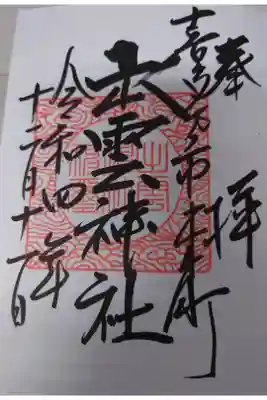 奉拝
喜多方市本町
出雲神社
令和四年
十二月十一日